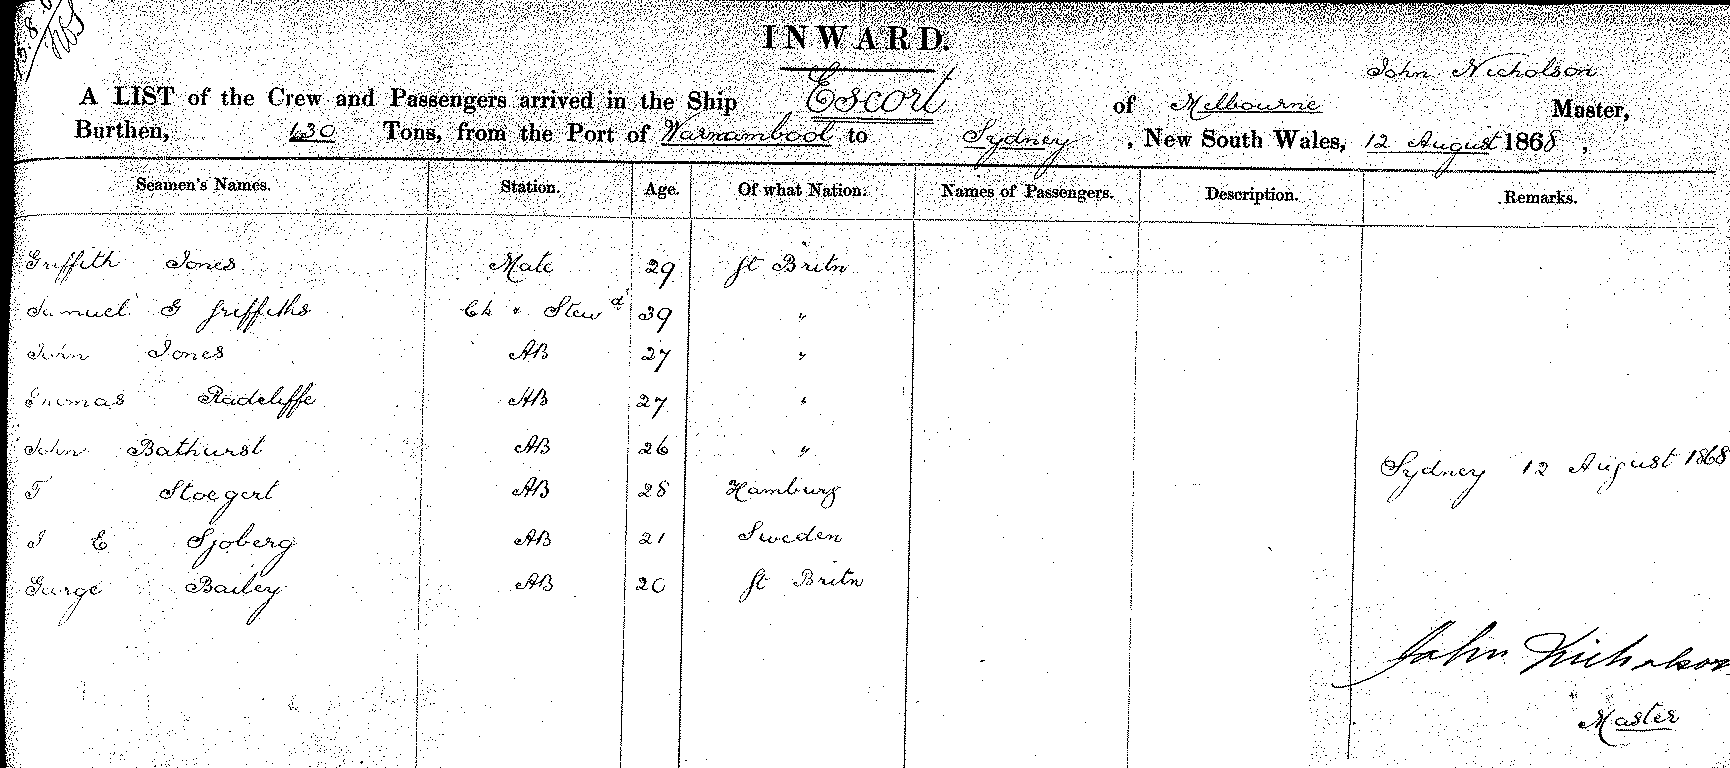 INWARD.
John Nicholson
A LIST of the Crew and Passengers arrived in the Ship Escort of Melbourne Master,
Burthen, 130 Tons, from the Port of Warnambool to Sydney , New South Wales, 12 August 1868 ,
Seamen's Names. Station. Age. Of what Nation. Names of Passengers. Description. Remarks.
Griffith Jones Mate 29 Gt Britn
Samuel G Griffiths Ck & Stewd 39 "
John Jones AB 27 "
Thomas Radcliffe AB 27 "
John Bathurst AB 26 "
Sydney 12 August 1868
T Stoegert AB 28 Hamburg
J E Sjoberg AB 21 Sweden
George Bailey AB 20 Gt Britn
John Nicholson
Master